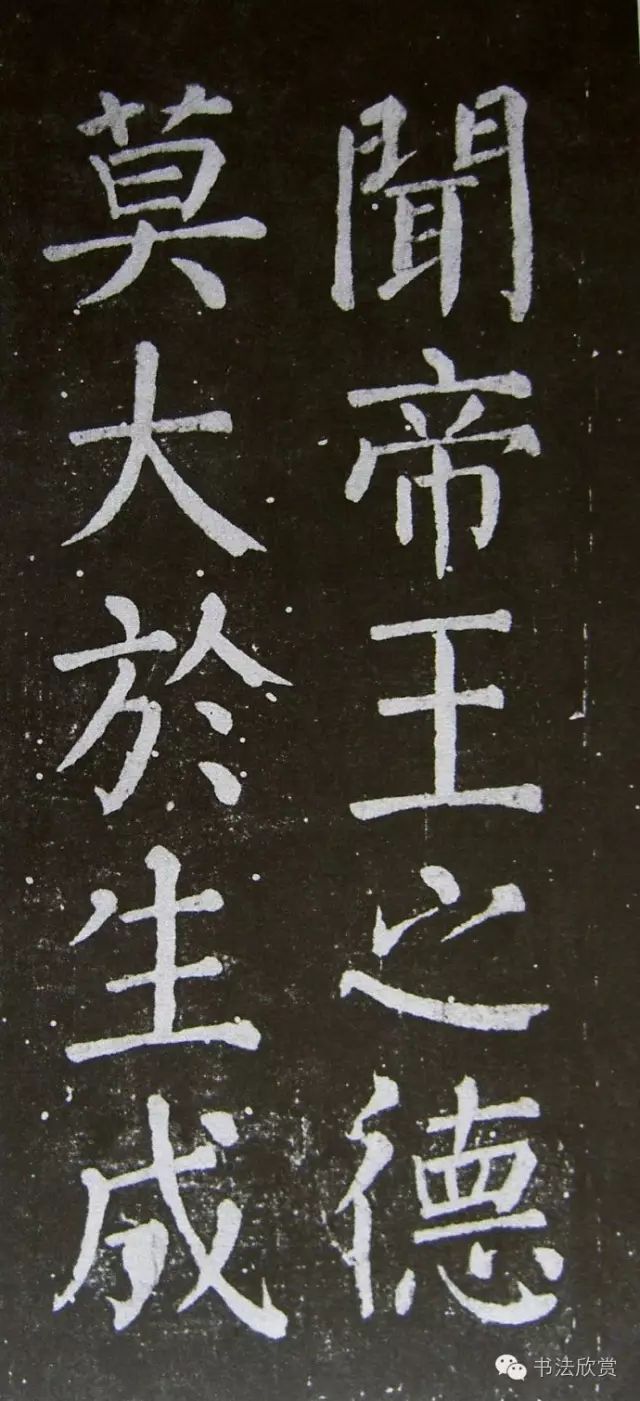 聞帝王之德
莫大於生成
书法欣赏